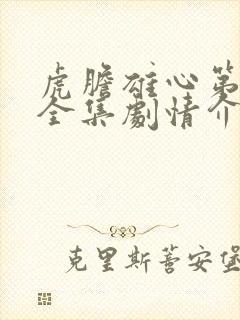 虎胆雄心第
全集剧情介
克里斯蒂安堡